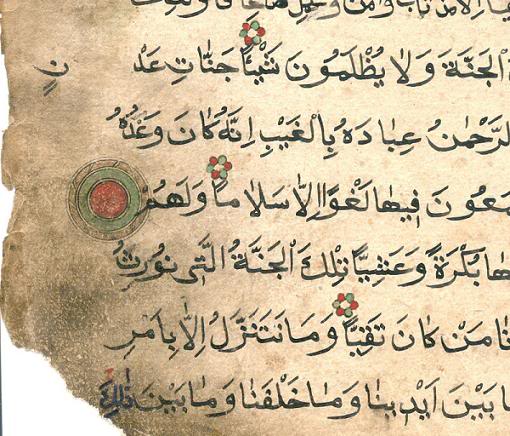 اِلَّا مَنْ تَابَ وَاٰمَنَ وَعَمِلَ صَالِحًا
الْجَنَّةَ وَلَا يُظْلَمُونَ شَيْئًا جَنَّاتِ عَدْ
نٍ
الرَّحْمٰنُ عِبَادَهُ بِالْغَيْبِ اِنَّهُ كَانَ وَعْدُهُ
سْمَعُونَ فِيهَا لَغْوًا اِلَّا سَلَامًا وَلَهُمْ
هَا بُكْرَةً وَعَشِيًّا تِلْكَ الْجَنَّةُ الَّتِى نُورِثُ
نَا مَنْ كَانَ تَقِيًّا وَمَا نَتَنَزَّلُ اِلَّا بِاَمْرِ
ا بَيْنَ اَيْدِينَا وَمَا خَلْفَنَا وَمَا بَيْنَ ذٰلِكَ